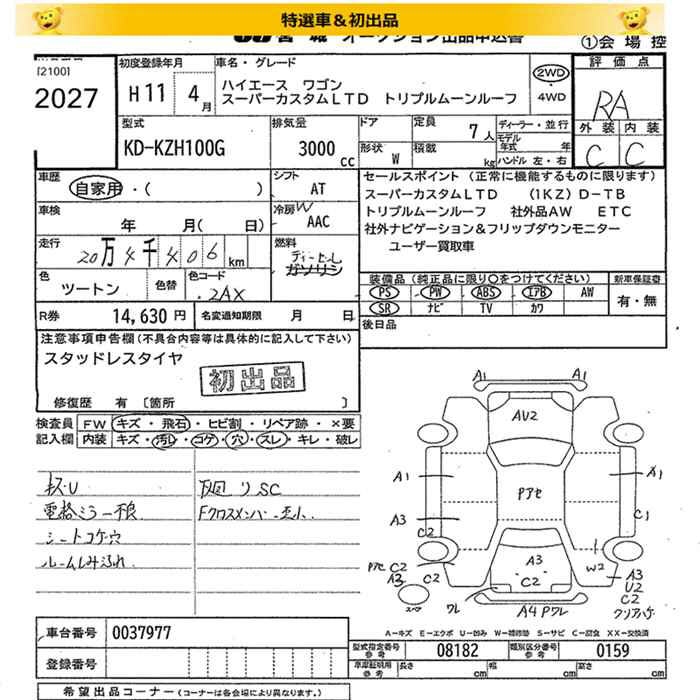 特選車＆初出品
JU 宮 城 オークション出品申込書
①会 場 控
[2100]
2027
初度登録年月
H11 4月
車名・グレード
ハイエース ワゴン
スーパーカスタムＬＴＤ トリプルムーンルーフ
2WD
4WD
評価点
RA
外装 内装
C C
型式
KD-KZH100G
排気量
3000 cc
ドア
形状 W
定員 7人
積載 kg
ディーラー・並行
モデル年式 年
ハンドル 左・右
車歴
自家用・( )
シフト
AT
車検
年 月( 日)
冷房 W
AAC
走行
20万4千406 km
燃料
ディーゼル
ガソリン
色
ツートン
色替
色コード
2AX
R券 14,630 円
名変通知期限 月 日
セールスポイント (正常に機能するものに限ります)
スーパーカスタムＬＴＤ (1KZ) D-TB
トリプルムーンルーフ 社外品AW ETC
社外ナビゲーション＆フリップダウンモニター
ユーザー買取車
装備品 (純正品に限り○をつけてください)
PS PW ABS エアB AW
SR ナビ TV カワ
新車保証書
有・無
後日品
注意事項申告欄 (不具合内容等は具体的に記入して下さい)
スタッドレスタイヤ
初出品
修復歴 有 [箇所 ]
検査員記入欄
FW キズ・飛石・ヒビ割・リペア跡・×要
内装 キズ・汚れ・コゲ・穴・スレ・キレ・破レ
キズU
電格ミラー不良
シートコゲ穴
ルームしみ汚れ
下廻りSC
Fクロスメンバー歪小
A1
A1
AV2
A1
Pアセ
A1
A3
C2
C1
W2
PアセC2
A3
C2
スペア
ワレ
A3
C2
A4 Pワレ
A3
U2
C2
クリアハゲ
A－キズ E－エクボ U－凹み W－補修跡 S－サビ C－腐食 XX－交換済
車台番号 0037977
登録番号
型式指定番号 参考 08182
類別区分番号 参考 0159
車庫証明用 参考
長さ cm
幅 cm
高さ cm
希望出品コーナー (コーナーは各会場により異なります。)